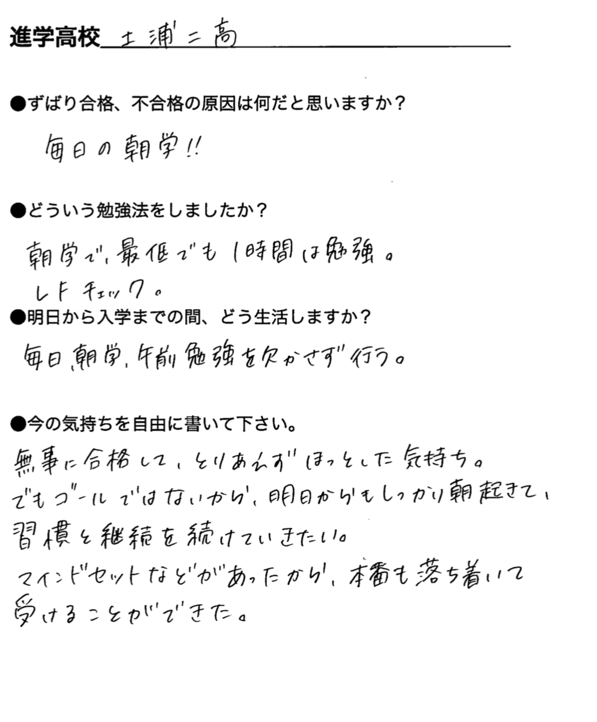 進学高校 土浦二高
●ずばり合格、不合格の原因は何だと思いますか？
毎日の朝学!!
●どういう勉強法をしましたか？
朝学で、最低でも1時間は勉強。
LFチェック。
●明日から入学までの間、どう生活しますか？
毎日、朝学、午前勉強を欠かさず行う。
●今の気持ちを自由に書いて下さい。
無事に合格して、とりあえずほっとした気持ち。
でもゴールではないから、明日からもしっかり朝起きて、
習慣と継続を続けていきたい。
マインドセットなどがあったから、本番も落ち着いて
受けることができた。